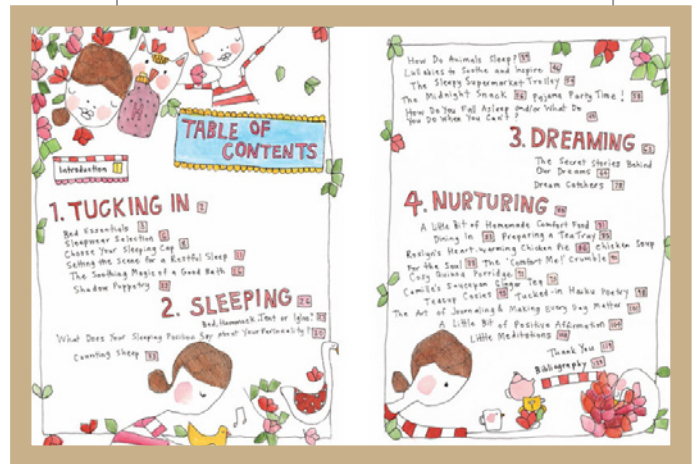 TABLE OF
CONTENTS
Introduction
1. TUCKING IN 2
Bed Essentials 3
Sleepwear Selection 6
Choose Your Sleeping Cap
Setting the Scene for a Restful Sleep
The Soothing Magic of a Good Bath
Shadow Puppetry
2. SLEEPING 26
Bed, Hammock, Tent or Igloo?
What Does Your Sleeping Position Say About Your Personality? 30
Counting Sheep
How Do Animals Sleep?
Lullabies to Soothe and Inspire
The Sleepy Supermarket Trolley
The Midnight Snack Pajama Party Time!
How Do You Fall Asleep and/or What Do
You Do When You Can't?
3. DREAMING 63
The Secret Stories Behind
Our Dreams
Dream Catchers
4. NURTURING
A Little Bit of Homemade Comfort Food
Dining In Preparing a Tea Tray
Roslyn's Heart-warming Chicken Pie Chicken Soup
For the Soul The 'Comfort Me!' Crumble
Cosy Quinoa Porridge
Camille's Saucepan Ginger Tea
Teacup Cosies Tucked-in Haiku Poetry
The Art of Journaling & Making Every Day Matter
A Little Bit of Positive Affirmation
Little Meditations
Thank You
Bibliography